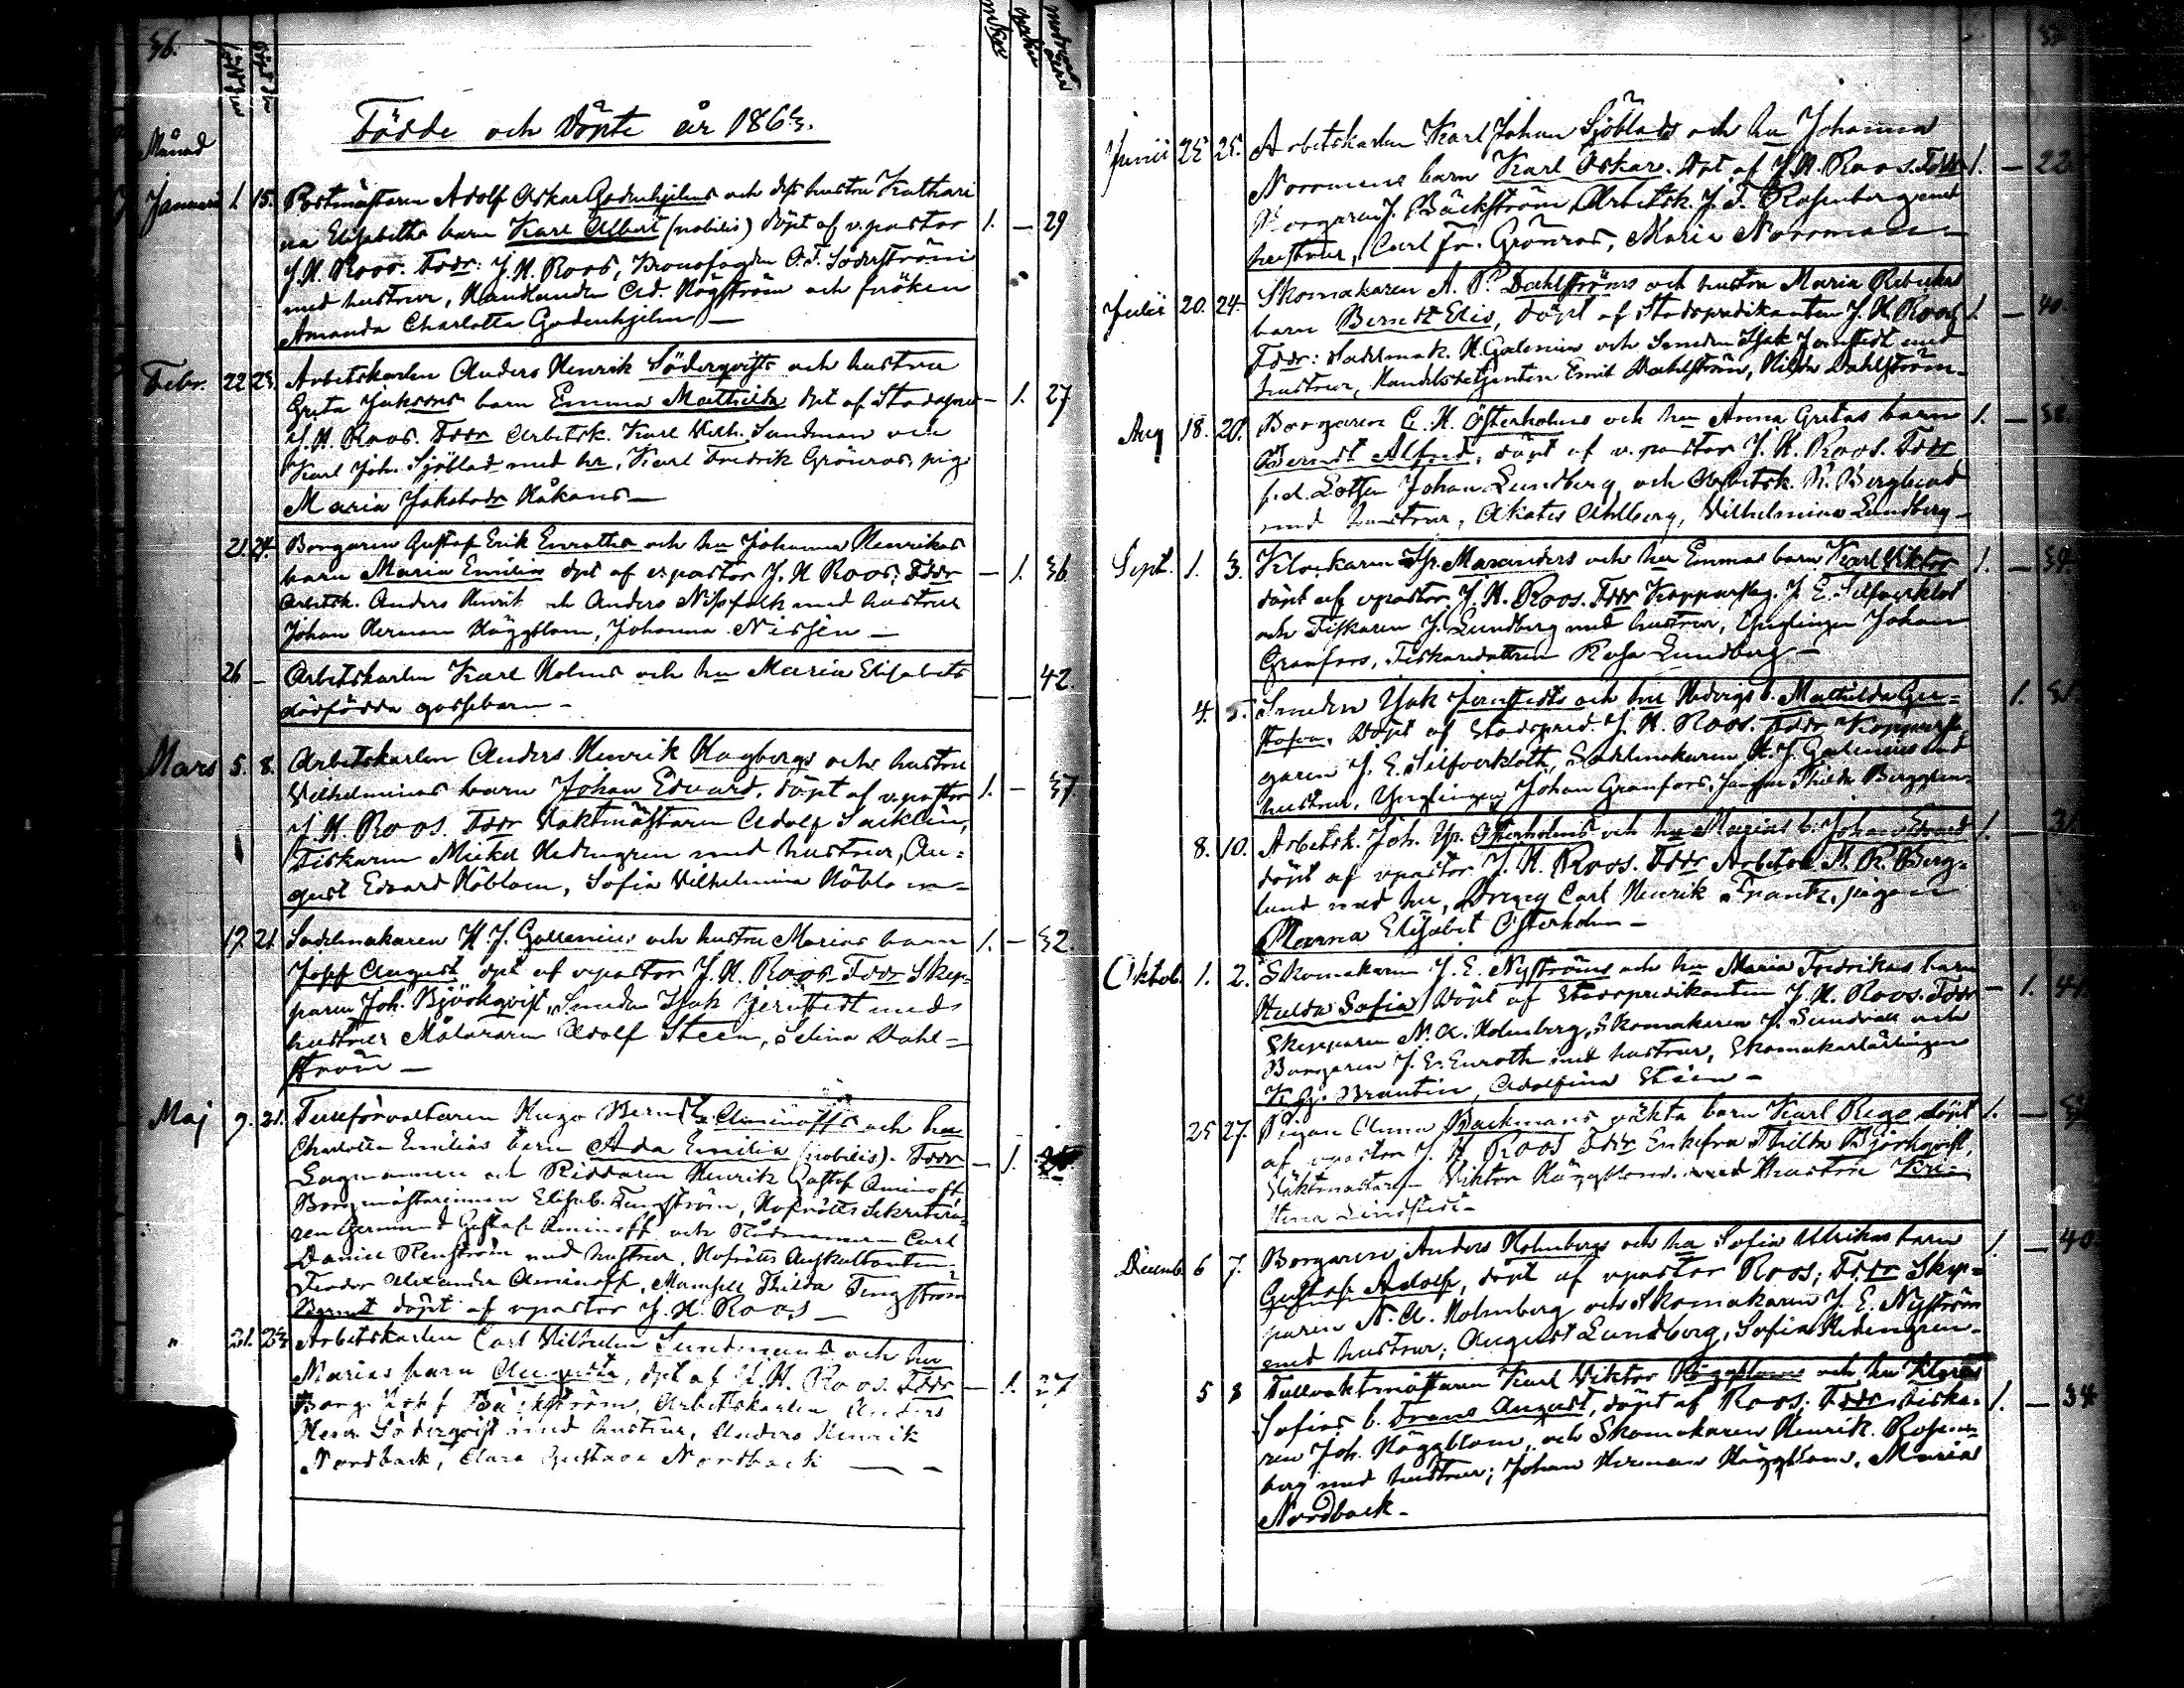 36.
Födde och Döpte år 1863.
Månad
Januari 1. 15. Postmästaren Adolf Oskar Godenhjelms och dess hustru Kathari
na Elisabeths barn Karl Albert (nobilis) döpt af v. pastor 1. — 29
J. H. Roos. Fddr: J. H. Roos, Kronofogden O. F. Söderström
med hustrur, Handlanden Ad. Högström och fröken
Amanda Charlotta Godenhjelm —
Febr. 22 25. Arbetskarlen Anders Henrik Söderqvists och hustru
Greta barn Emma Mathilda dpt af — 1. 27
J. H. Roos. Fddr Arbetsk. Karl Vilh. Sundman och
Karl Joh. Sjöblad med hr, Karl Fredrik Grönros, pig.
Maria Håkans —
21. 24. Borgaren Gustaf Erik Enroths och hu Johanna Henrikas
barn Maria Emilia dpt af v. pastor J. H. Roos; Fddr — 1. 36
Arbetsk. Anders Henrik och Anders med hustrur
Johan Herman Häggblom, Johanna Nissén —
26 — Arbetskarlen Karl Holms och hu Maria Elisabets 42.
dödfödda gossebarn — — —
Mars 5. 8. Arbetskarlen Anders Henrik Hagbergs och hustru
Vilhelminas barn Johan Edvard, döpt af v. pastor 1. — 37
J. H. Roos. Fddr Vaktmästaren Adolf
Fiskaren Mickel Hedengren med hustrur, Au=
gust Edvard Höblom, Sofia Vilhelmina Höblom —
17. 21. Sadelmakaren H. J. Gallenius och hustru Marias barn 1. — 32.
Josef August dpt af vpastor J. H. Roos. Fddr Skep=
paren Joh. Björkqvist, Smeden Isak Jernstedt med
hustrur Målaren Adolf Steen, Selina Dahl=
ström —
Maj 9. 21. Tullförvaltaren Hugo Berndt Aminoffs och hu
Charlotta Emilias barn Ada Emilia (nobilis). Fddr — 1.
Lagmannen och Riddaren Henrik Gustaf Aminoff
Borgmästarinnan Elisab. Tengström, Hofrätts Sekretera=
ren Germund Gustaf Aminoff och Rådmannen Carl
Daniel Renström med hustrur, Hofrätts Auskultanten
Feodor Alexander Aminoff, Mamsell Thilda Tengström
döpt af vpastor J. H. Roos —
" 21. 23 Arbetskarlen Carl Vilhelm Sundmans och hu
Marias barn Augusta, dpt af J. H. Roos. Fddr — 1. 27
Borg. Bäckström, Arbetskarlen Anders
Henr. Söderqvist med hustrur, Anders Henrik
Nordback, Clara Gustava Nordback — —
Junii 25 25. Arbetskarlen Karl Johan Sjöblads och hu Johanna
Norrmens barn Karl Oskar. Dpt af J. H. Roos. Fddr 1. — 22.
Borgaren J. Bäckström, Arbetsk. J. F. Rosenberg med
hustrur, Carl Fr. Grönros, Maria Norrmann
Julii 20. 24. Skomakaren A. P. Dahlströms och hustru Maria Rebeckas
barn Berndt Elis, döpt af Stadspredikanten J. H. Roos 1. — 40.
Fddr: Sadelmak. H. Galenius och Smeden Isak Jernstedt med
hustrur, Handelsbetjenten Emil Dahlström, Hilda Dahlström —
Aug 18. 20. Borgaren C. H. Österholms och hu Anna Gretas barn 1. — 38.
Berndt Alfred, döpt af v. pastor J. H. Roos. Fddr
f.d. Lotsen Johan Lundberg och Arbetsk. R. Berglund
med hustrur, Ahlberg, Vilhelmina Lundberg —
Sept. 1. 3. Klockaren Maxanders och hu Emmas barn Karl Viktor 1. — 39.
döpt af vpastor J. H. Roos. Fddr Kopparslag. J. E. Silfverklot
och Fiskaren J. Lundberg med hustrur, Ynglingen Johan
Granfors, Fiskaredottren Rosa Lundberg —
4. 5. Smeden Isak Jernstedts och hu Hedvigs b. Mathilda Gu= 1.
stafva. Döpt af Stadspred. J. H. Roos. Fddr Kopparsla=
garen J. E. Silfverkloth, Sadelmakaren H. J. Galenius med
hustrur, Ynglingen Johan Granfors, Jungfru Thilda Berggren —
8. 10. Arbetsk. Joh. Österholms och hu Marias b. Johan Edvard 1. — 31.
döpt af vpastor J. H. Roos. Fddr Arbetsk. R. Berg=
lund med hu, Dreng Carl Henrik Frantz, pigan
Elisabet Österholm —
Oktob. 1. 2. Skomakaren J. E. Nyströms och hu Maria Fredrikas barn
Hulda Sofia, döpt af Stadspredikanten J. H. Roos. Fddr — 1. 41.
Skepparen N. A. Holmberg, Skomakaren J. Sundvall och
Borgaren J. E. Enroth med hustrur, Skomakarlärlingen
K. G. Brantin, Adolfina Stéen —
25 27. Pigan Anna Backmans oäkta barn Karl döpt 1. —
af vpastor J. H. Roos Fddr Enkefru Thilda Björkqvist,
Vaktmästaren Viktor Häggblom med Hustru
Lindstedt —
Decemb. 6 7. Borgaren Anders Holmbergs och hu Sofia Ulrikas barn 1. — 40
Gustaf Adolf, döpt af vpastor Roos; Fddr Skep=
paren N. A. Holmberg och Skomakaren J. E. Nyström
med hustrur; August Lundberg, Sofia Hedengren —
5 8 Tullvaktmästaren Karl Viktor Häggbloms och hu Klaras
Sofias b. Frans August, döpt af Roos; Fddr Fiska= 1. — 34
ren Joh. Häggblom, och Skomakaren Henrik Rosen=
berg med hustrur; Johan Herman Häggblom, Maria
Nordback —